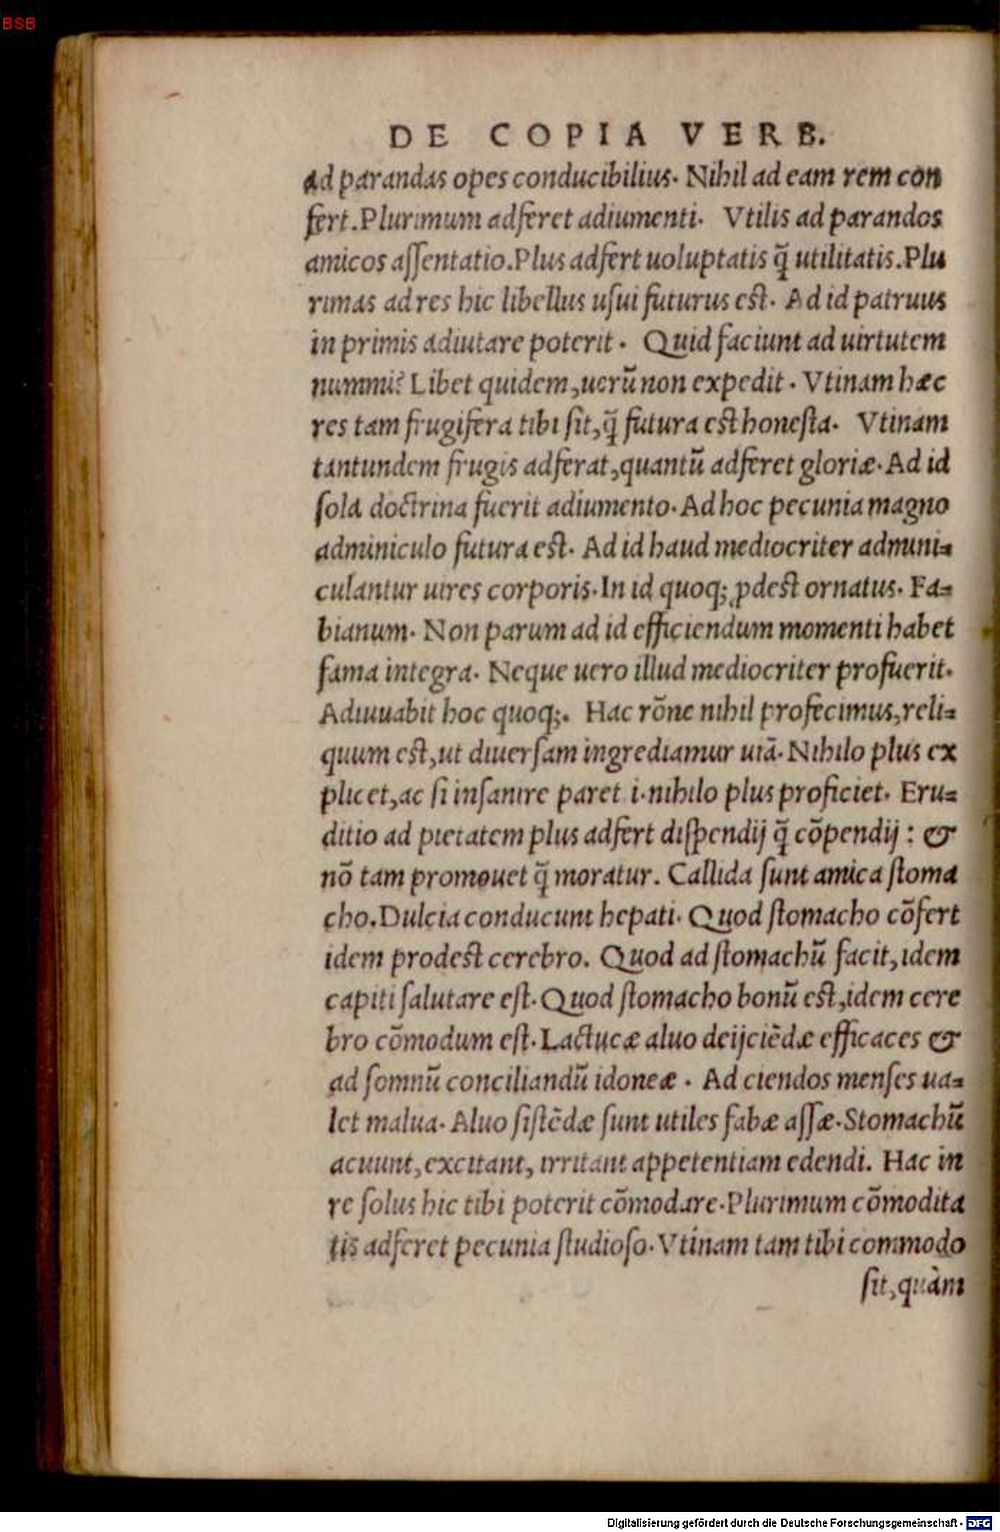 BSB
DE COPIA VERB.
ad parandas opes conducibilius. Nihil ad eam rem con
fert. Plurimum adferet adiumenti. Vtilis ad parandos
amicos aſſentatio. Plus adfert uoluptatis q̃ utilitatis. Plu
rimas ad res hic libellus uſui futurus eſt. Ad id patruus
in primis adiutare poterit. Quid faciunt ad uirtutem
nummi? Libet quidem, uerũ non expedit. Vtinam hæc
res tam frugifera tibi ſit, q̃ futura eſt honeſta. Vtinam
tantundem frugis adferat, quantũ adferet gloriæ. Ad id
ſola doctrina fuerit adiumento. Ad hoc pecunia magno
adminiculo futura eſt. Ad id haud mediocriter admini⸗
culantur uires corporis. In id quoq; ꝓdeſt ornatus. Fa⸗
bianum. Non parum ad id efficiendum momenti habet
fama integra. Neque uero illud mediocriter profuerit.
Adiuuabit hoc quoq;. Hac rõne nihil profecimus, reli⸗
quum eſt, ut diuerſam ingrediamur uiã. Nihilo plus ex
plicet, ac ſi inſanire paret i. nihilo plus proficiet. Eru⸗
ditio ad pietatem plus adfert diſpendij q̃ cõpendij: &
nõ tam promouet q̃ moratur. Callida ſunt amica ſtoma
cho. Dulcia conducunt hepati. Quod ſtomacho cõfert
idem prodeſt cerebro. Quod ad ſtomachũ facit, idem
capiti ſalutare eſt. Quod ſtomacho bonũ eſt, idem cere
bro cõmodum eſt. Lactucæ aluo deijciẽdæ efficaces &
ad ſomnũ conciliandũ idoneæ. Ad ciendos menſes ua⸗
let malua. Aluo ſiſtẽdæ ſunt utiles fabæ aſſæ. Stomachũ
acuunt, excitant, irritant appetentiam edendi. Hac in
re ſolus hic tibi poterit cõmodare. Plurimum cõmodita
tis adferet pecunia ſtudioſo. Vtinam tam tibi commodo
ſit, quàm
Digitalisierung gefördert durch die Deutsche Forschungsgemeinschaft - DFG